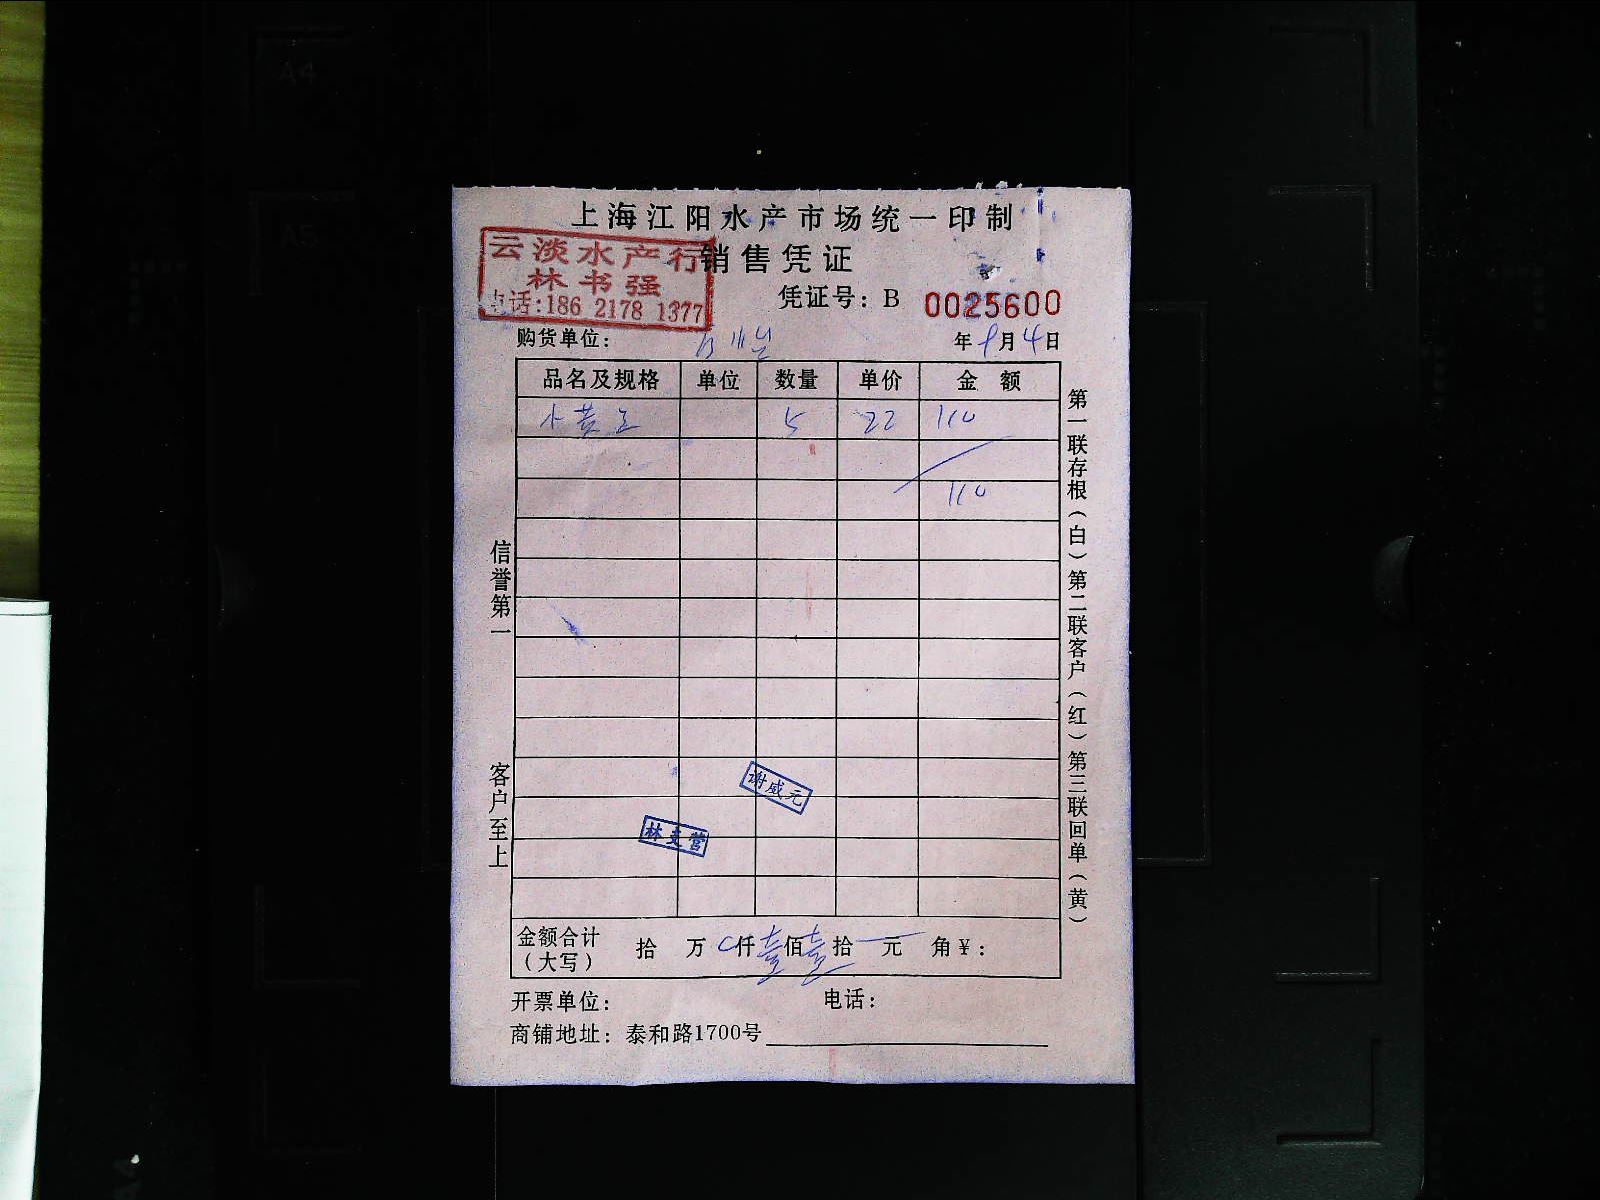 A4
A5
上海江阳水产市场统一印制
云淡水产行
林书强
电话:186 2178 1377
销售凭证
凭证号: B 0025600
购货单位:
年 9月4日
品名及规格 单位 数量 单价 金 额
小黄 5 22 110
110
信誉第一
客户至上
第一联存根(白)第二联客户(红)第三联回单(黄)
谢威元
林支营
金额合计(大写) 拾 万 仟壹佰壹拾 元 角¥:
开票单位: 电话:
商铺地址: 泰和路1700号